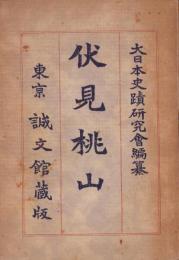 大日本史蹟研究會編纂
伏見桃山
東京 誠文館藏版